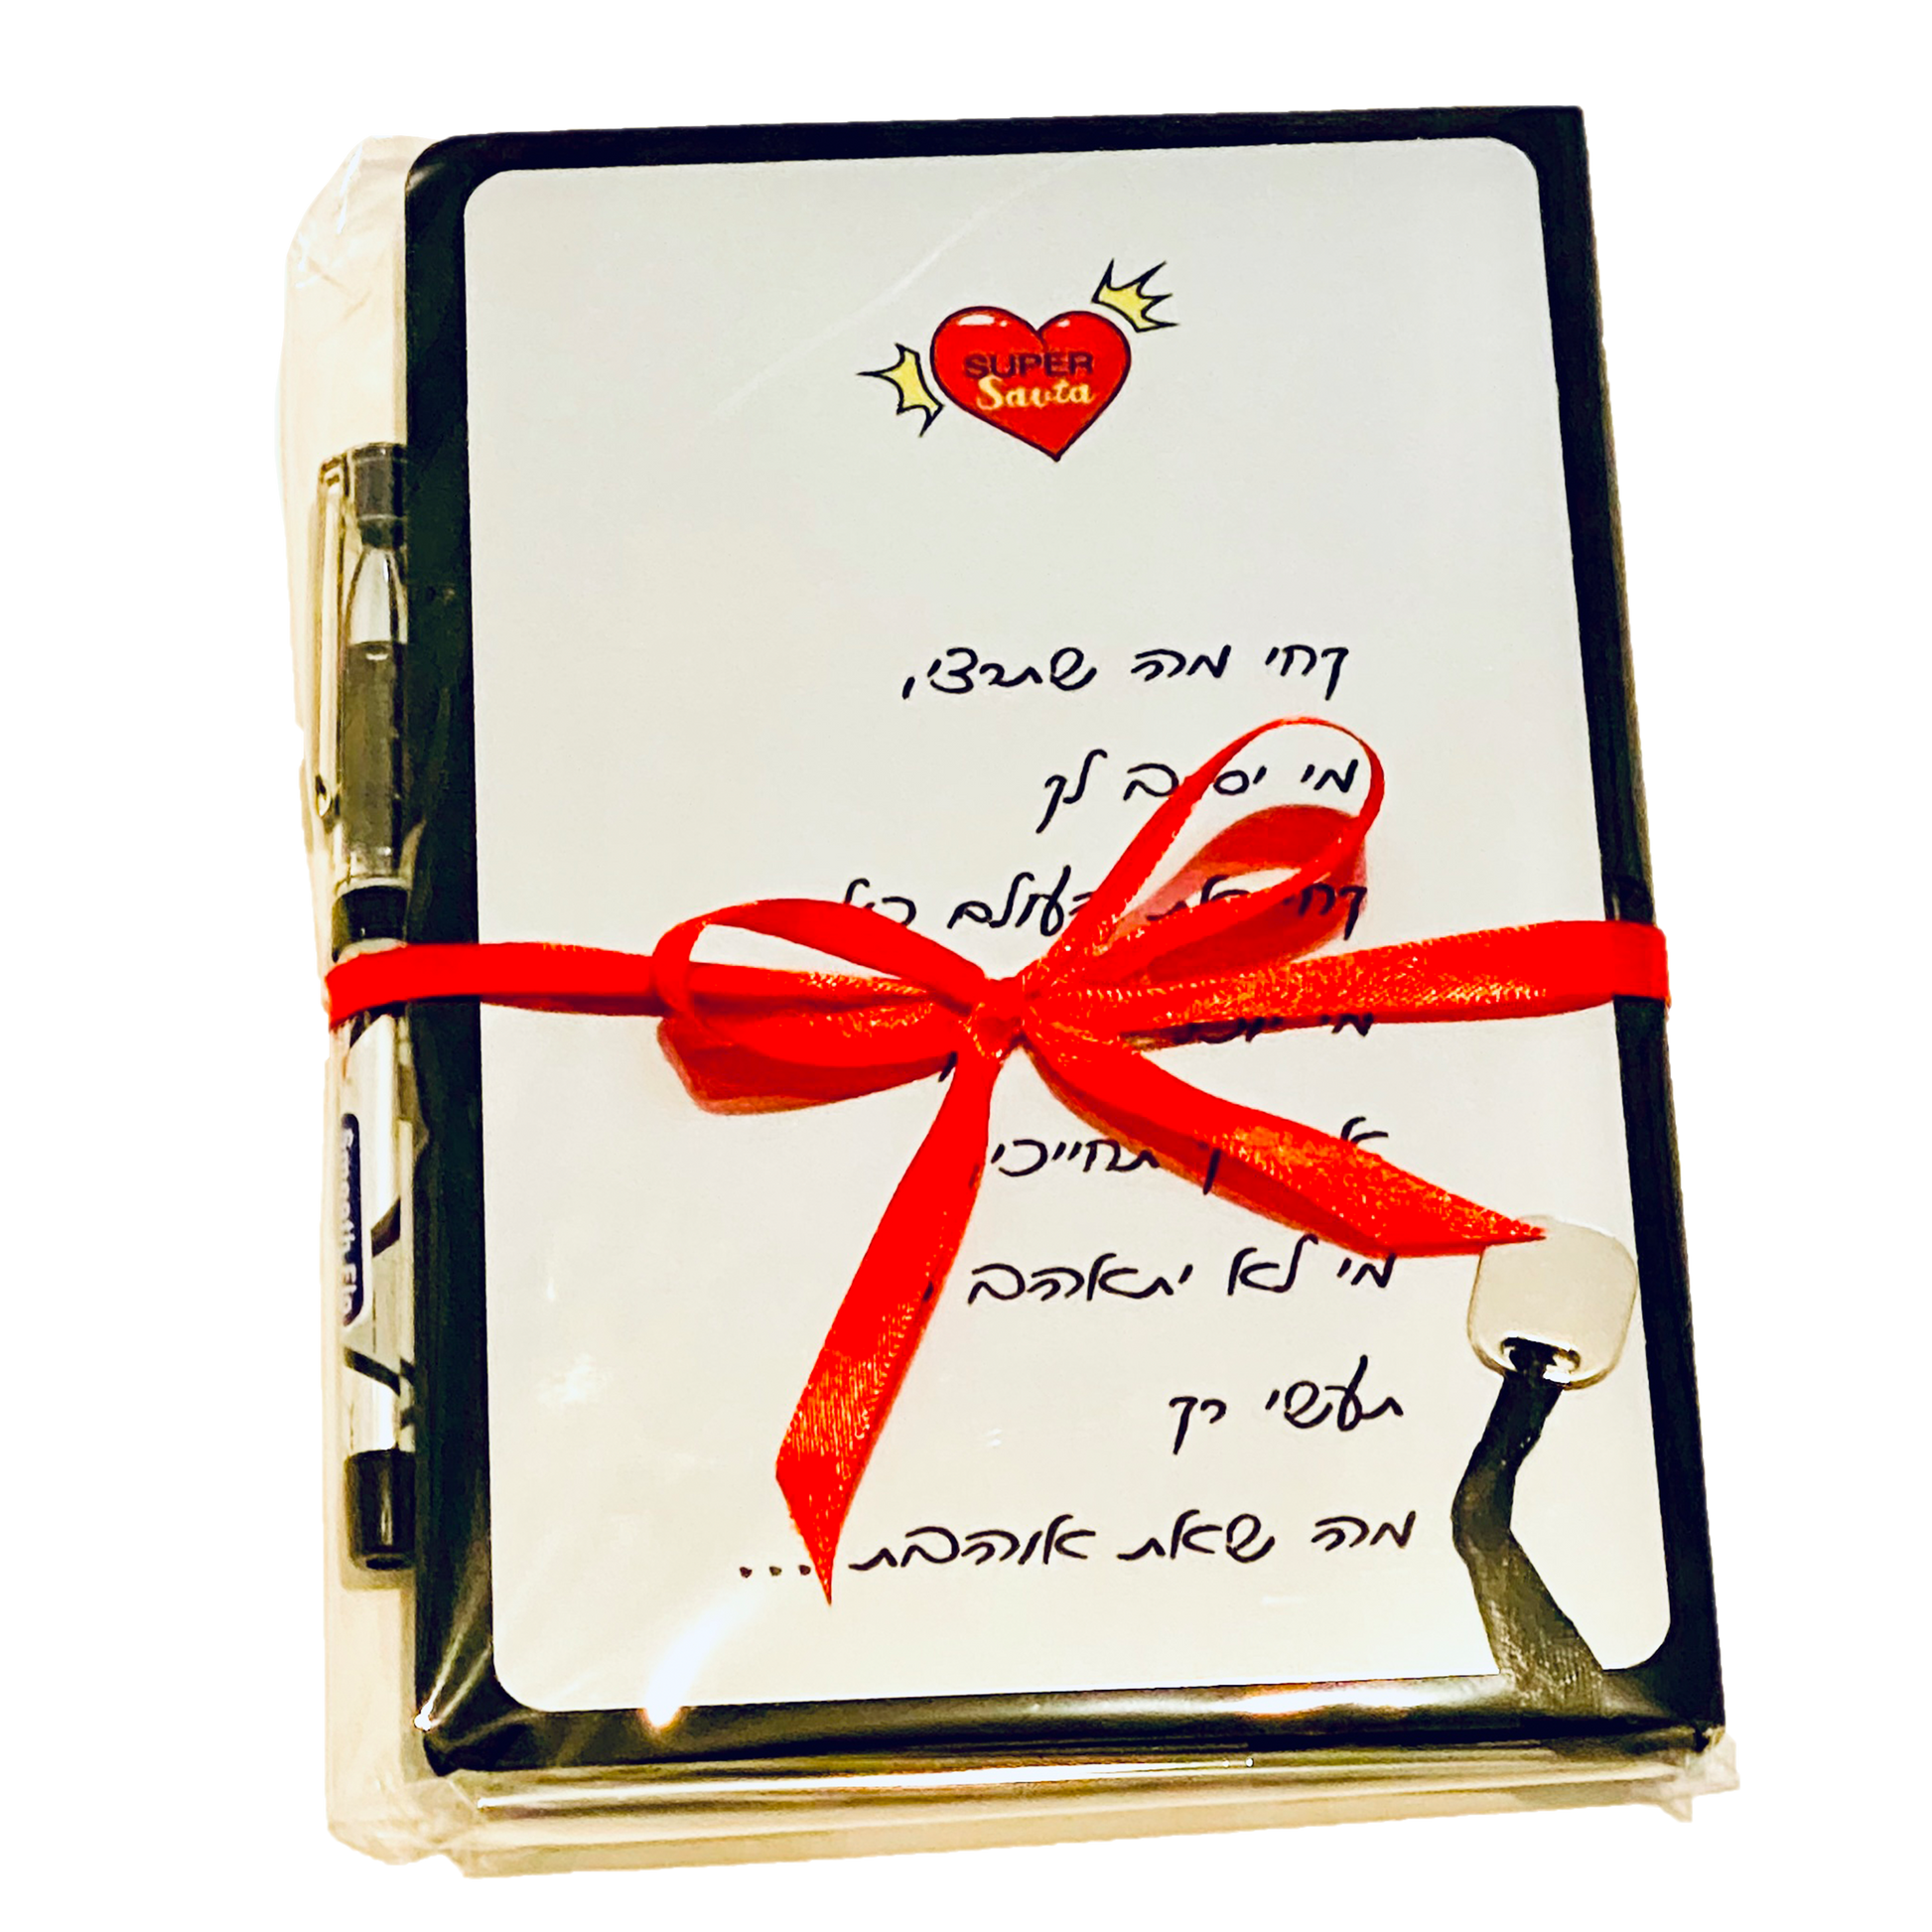 SUPER
Savta
קחי מה שתרצי,
מי לך
העולם
מי
תחייכי
מי לא יתאהב
תעשי רק
מה שאת אוהבת...
Smooth Flo